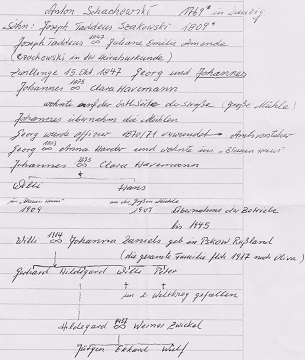 Anton Schachowski 1769* in Danzig
Sohn: Joseph Taddäus Szakowski 1809*
Joseph Taddäus ∞ 1847 Juliane Emilie Amenda
(Czochowski in der Heiratsurkunde)
Zwillinge 15. Okt. 1847 Georg und Johannes
Johannes ∞ 1875 Clara Havemann
wohnte auf der Ostseite der Straße (große Mühle)
Johannes übernahm die Mühlen
Georg wurde Offizier 1870/71 verwundet → Amtsvorsteher
Georg ∞ Anna Harder und wohnte im "Blauen Haus"
Johannes ∞ 1875 Clara Havemann
Willi Hans
im "Blauen Haus" in der großen Mühle
1904 1907 Übernahme der Betriebe
bis 1945
Willi ∞ Johanna Daniels geb. am PSKOW Rußland
(die gesamte Familie floh 1917 nach Oliva)
Gerhard Hildegard Willi Peter
† †
im 2. Weltkrieg gefallen
Hildegard ∞ Werner Zwickel
Jürgen Ekhard Wulf